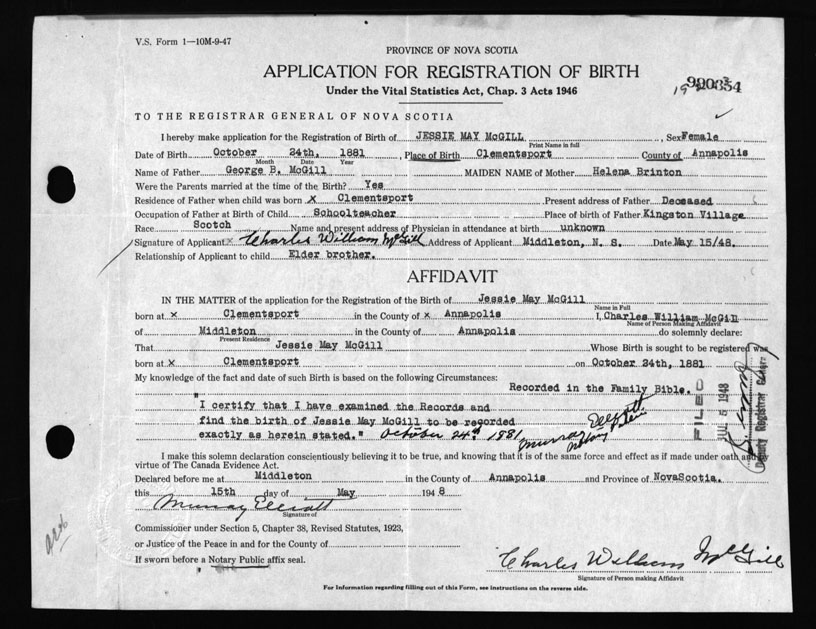 V.S. Form 1—10M-9-47
PROVINCE OF NOVA SCOTIA
APPLICATION FOR REGISTRATION OF BIRTH
Under the Vital Statistics Act, Chap. 3 Acts 1946
TO THE REGISTRAR GENERAL OF NOVA SCOTIA
I hereby make application for the Registration of Birth of JESSIE MAY McGILL, Sex Female
Print Name in full
Date of Birth October 24th, 1881, Place of Birth Clementsport County of Annapolis
Month Date Year
Name of Father George B. McGill MAIDEN NAME of Mother Helena Brinton
Were the Parents married at the time of the Birth? Yes
Residence of Father when child was born x Clementsport Present address of Father Deceased
Occupation of Father at Birth of Child Schoolteacher Place of birth of Father Kingston Village
Race Scotch Name and present address of Physician in attendance at birth unknown
Signature of Applicant x Charles William McGill Address of Applicant Middleton, N. S. Date May 15/48.
Relationship of Applicant to child Elder brother.
AFFIDAVIT
IN THE MATTER of the application for the Registration of the Birth of Jessie May McGill
Name in Full
born at x Clementsport in the County of x Annapolis I, Charles William McGill
Name of Person Making Affidavit
of Middleton in the County of Annapolis do solemnly declare:
Present Residence
That Jessie May McGill Whose Birth is sought to be registered was
born at x Clementsport on October 24th, 1881
My knowledge of the fact and date of such Birth is based on the following Circumstances:
Recorded in the Family Bible.
"I certify that I have examined the Records and
find the birth of Jessie May McGill to be recorded
exactly as herein stated." October 24th 1881
Murray Elliott
Notary Public
FILED
1948
Deputy Registrar General
I make this solemn declaration conscientiously believing it to be true, and knowing that it is of the same force and effect as if made under oath and by
virtue of The Canada Evidence Act.
Declared before me at Middleton in the County of Annapolis and Province of NovaScotia.
this 15th day of May 1948
Murray Elliott
Signature of
Commissioner under Section 5, Chapter 38, Revised Statutes, 1923,
or Justice of the Peace in and for the County of
If sworn before a Notary Public affix seal.
Charles William McGill
Signature of Person making Affidavit
For Information regarding filling out of this Form, see instructions on the reverse side.